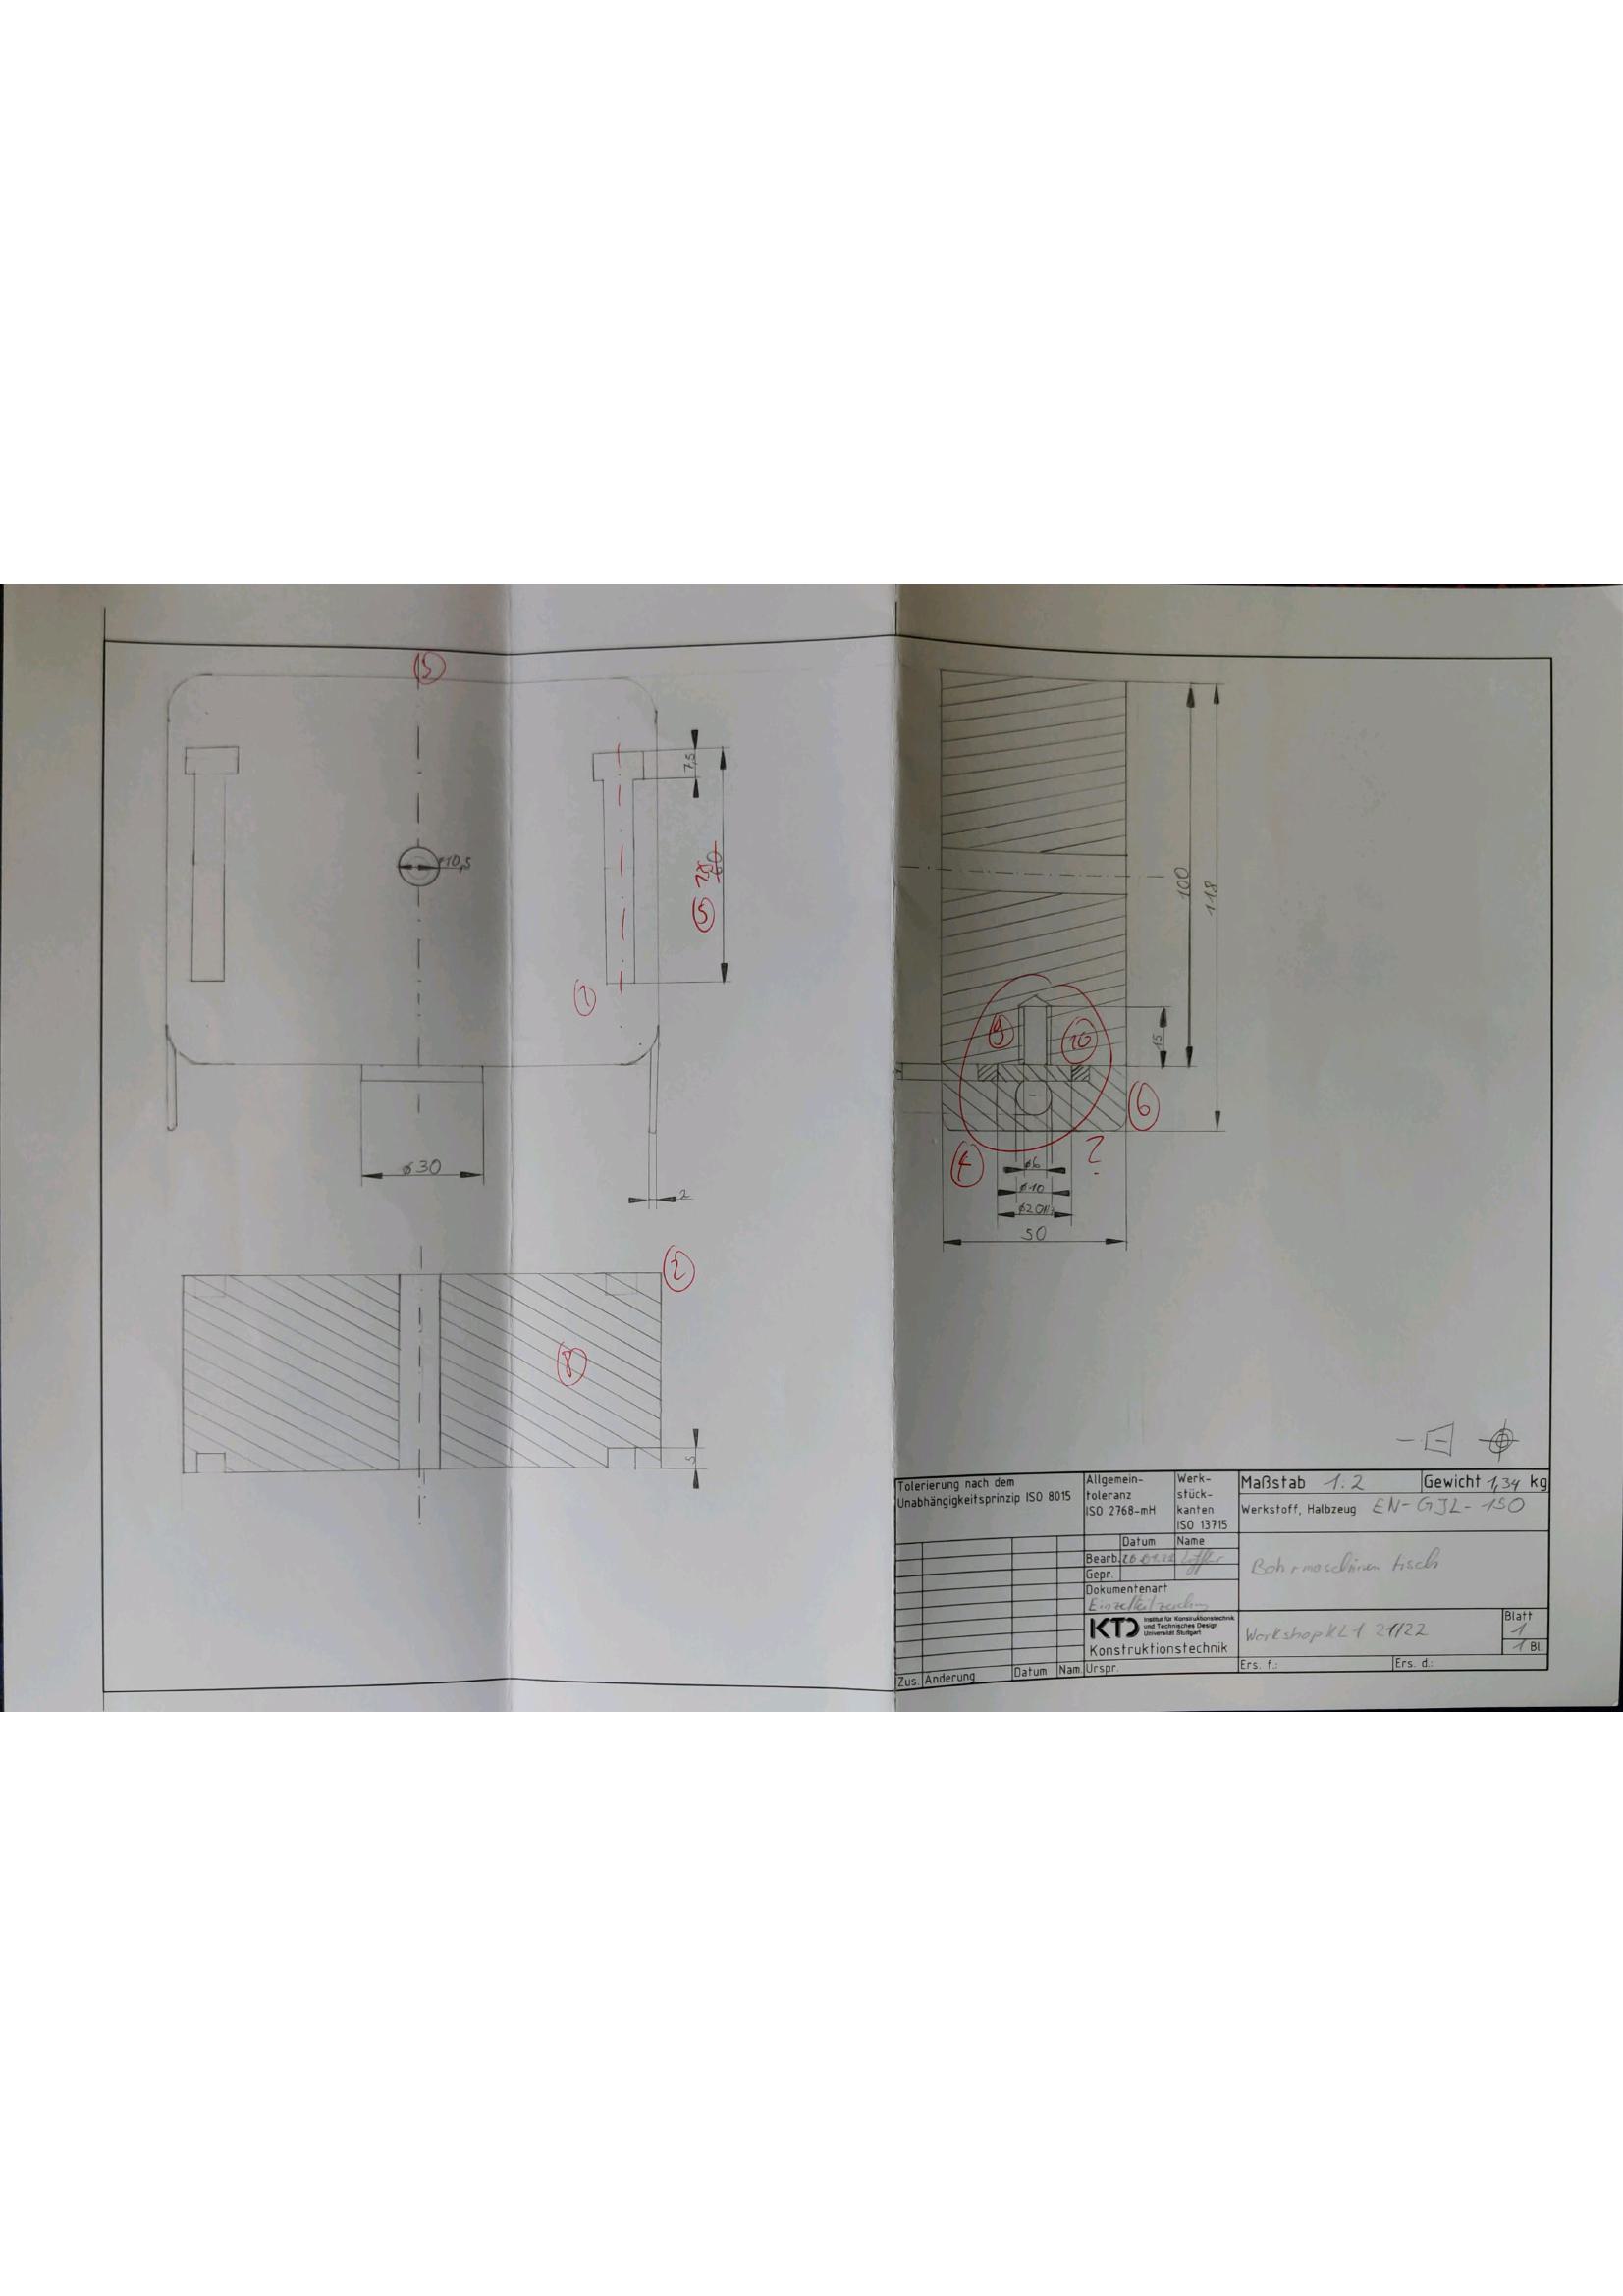 7,5
⌀10,5
60
5
1
100
118
9
10
15
6
4
?
⌀30
2
⌀6
⌀10
50
2
8
5
Tolerierung nach dem
Unabhängigkeitsprinzip ISO 8015
Allgemein-
toleranz
ISO 2768-mH
Werk-
stück-
kanten
ISO 13715
Maßstab 1:2
Gewicht 1,34 kg
Werkstoff, Halbzeug EN-GJL-150
Datum Name
Bearb.
Gepr.
Bohrmaschinentisch
Dokumentenart
Einzelteilzeichnung
KTD Institut für Konstruktionstechnik
und Technisches Design
Universität Stuttgart
Konstruktionstechnik
Workshop KL1 21/22
Blatt
1
1 Bl.
Zus. Änderung Datum Nam. Urspr. Ers. f.: Ers. d.: